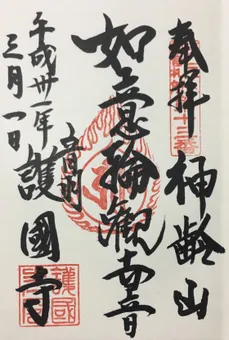 奉拝
神齢山
如意輪観世音
音羽
護國寺
平成卅一年
三月一日
護國